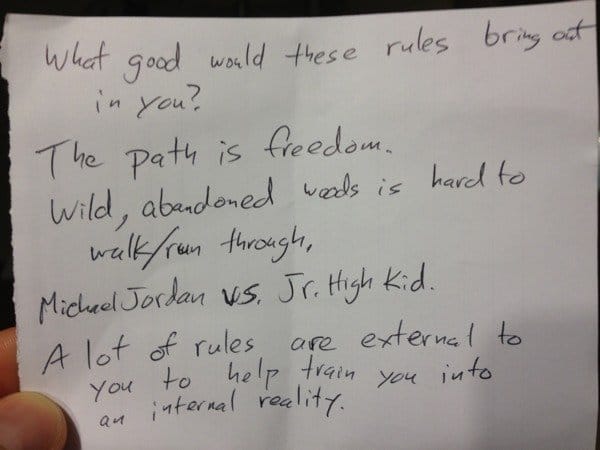 What good would these rules bring out
in you?
The path is freedom.
Wild, abandoned woods is hard to
walk/run through,
Michael Jordan vs. Jr. High Kid.
A lot of rules are external to
you to help train you into
an internal reality.